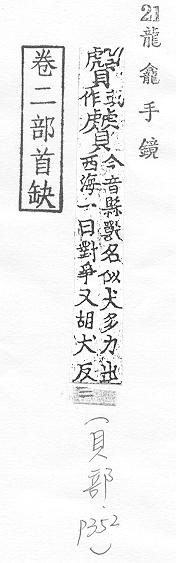 21 龍龕手鏡
今音縣獸名似犬多力出
作 西海一曰對爭又胡犬反
(貝部.p352)
卷二部首缺